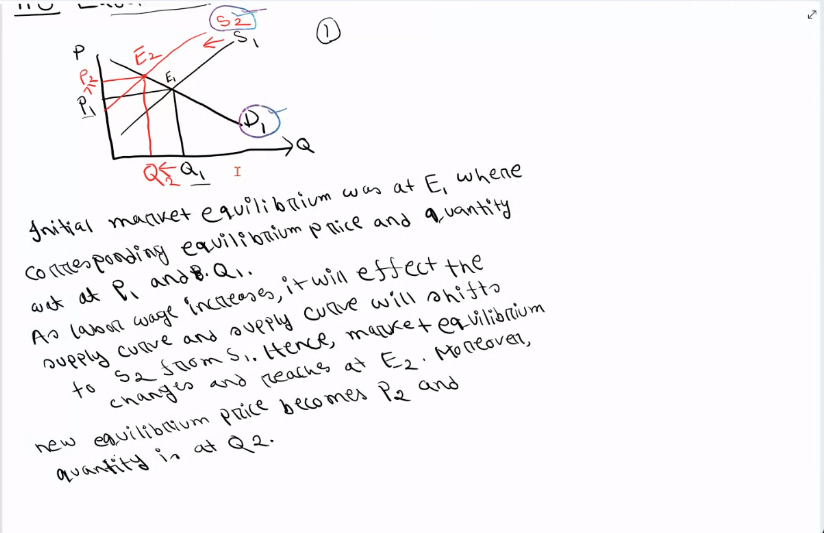 S2
S1
①
P
E2
E1
P2
P1
D1
Q
Q2
Q1
I
Initial market equilibrium was at E1 where
corresponding equilibrium price and quantity
at P1 and Q1.
As labor wage increases, it will effect the
supply curve and supply curve will shifts
to S2 from S1. Hence, market equilibrium
changes and reaches at E2. Moreover,
new equilibrium price becomes P2 and
quantity is at Q2.